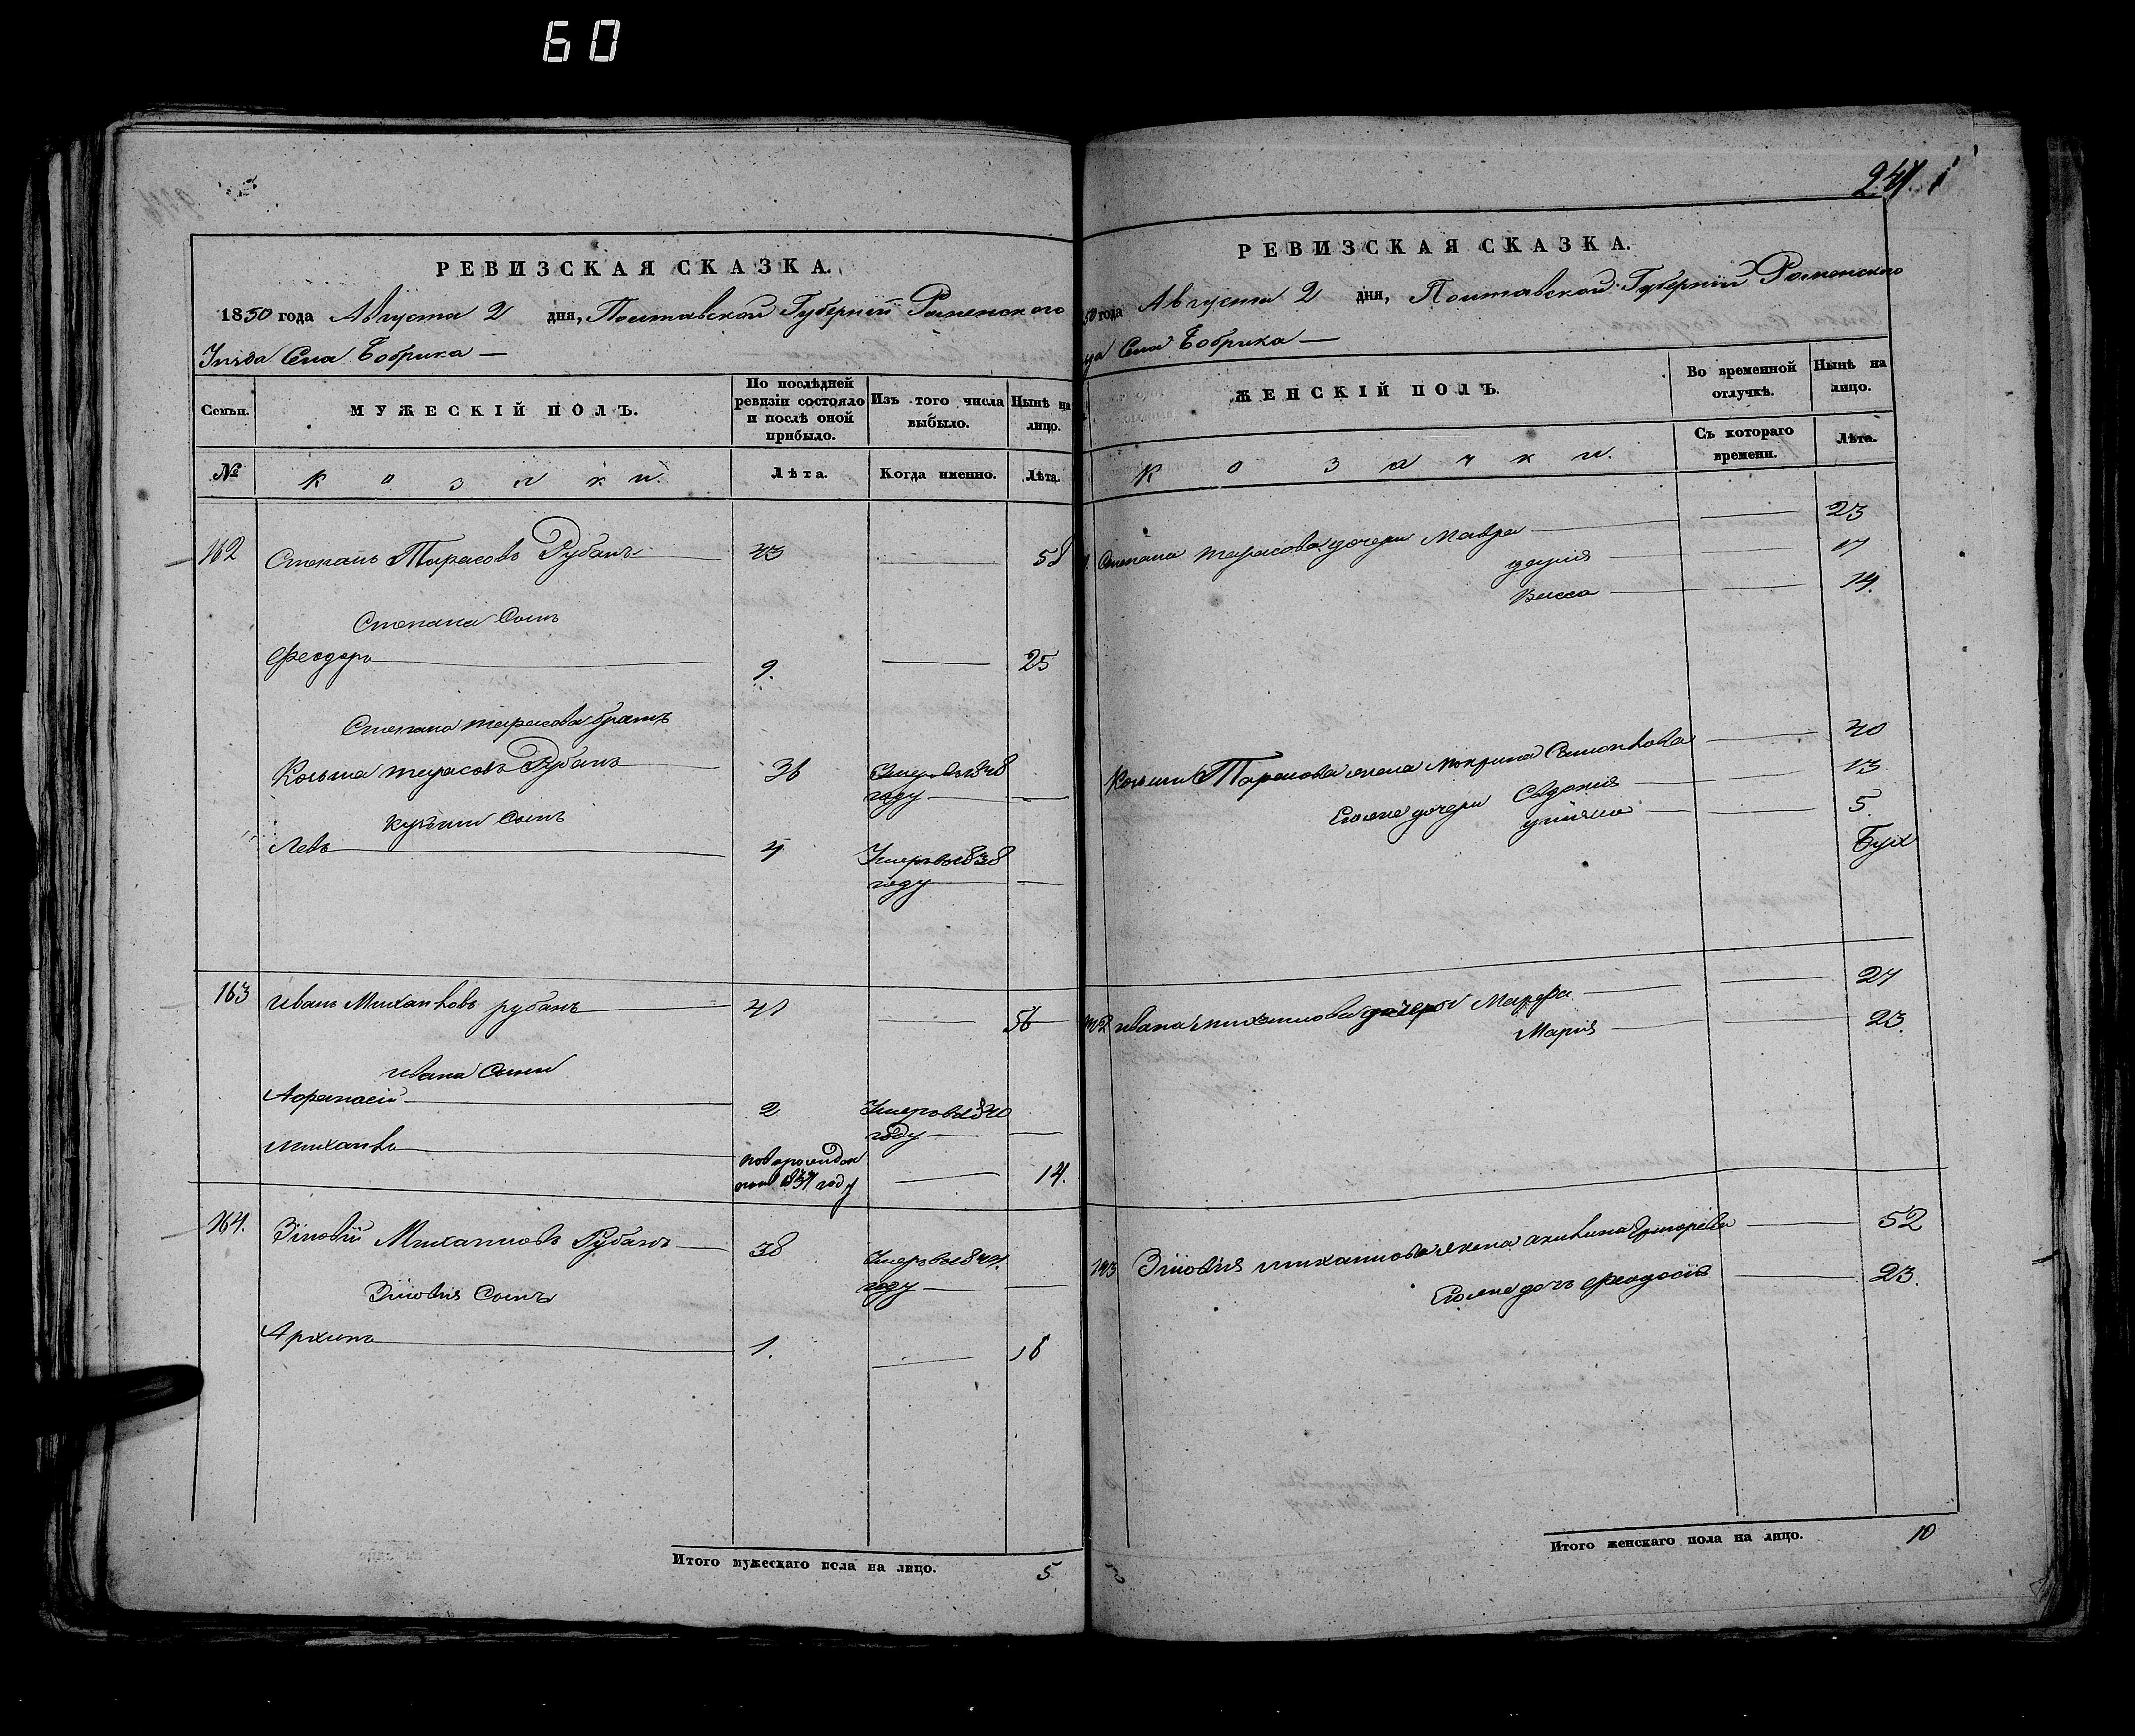 60
РЕВИЗСКАЯ СКАЗКА.
1850 года Августа 2 дня, Полтавской Губерніи Роменского
Уезда Села Бобрика —
Семьи. МУЖЕСКІЙ ПОЛЪ. По послѣдней ревизіи состояло и послѣ оной прибыло. Изъ того числа выбыло. Нынѣ на лицо.
№ Козаки. Лѣта. Когда именно. Лѣта.
162 Степанъ Тарасовъ Рубанъ 43 — 58
Степана Сынъ
Феодоръ 9. — 25
Степана Тарасова братъ
Козьма Тарасовъ Рубанъ 36 Умеръ въ 1848
году — —
Кузьми Сынъ
Левъ 4 Умеръ въ 1838
году — —
163 Иванъ Михайловъ Рубанъ 41 — 56
Ивана Сыни
Афанасій 2 Умеръ въ 1840
году — —
Михайло новорожден
въ 1837 году — 14.
164. Зіновій Михайловъ Рубанъ 38 Умеръ въ 1844.
году — —
Зіновія Сынъ
Архипъ 1. — 16
Итого мужескаго пола на лицо. 5
241
РЕВИЗСКАЯ СКАЗКА.
50 года Августа 2 дня, Полтавской Губерніи Роменского
Села Бобрика —
ЖЕНСКІЙ ПОЛЪ. Во временной отлучкѣ. Нынѣ на лицо.
Козачки. Съ котораго времени. Лѣта.
Степана Тарасова дочери Мавра — 23
— 17
Васса — 14.
Козьми Тарасова жена Мокрина — 40
Его же дочери Євдокія — 13
Уляна — 5
Ивана Михайлова дочери Марфа — 27
Марія — 23.
Зіновія Михайлова жена Акилина Григорієва — 52
Его же дочь Феодосія — 23.
Итого женскаго пола на лицо. 10